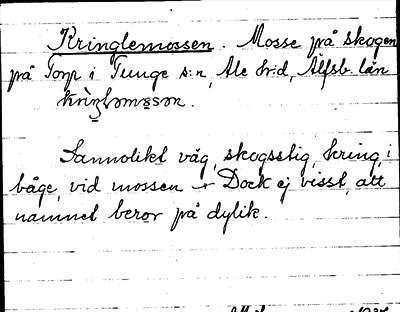 Kringlemossen. Mosse på skogen
på Torp i Tunge s:n, Ale h:d, Älfsb. län
Sannolikt väg, skogsstig, kring, i
båge, vid mossen. Dock ej visst, att
namnet beror på dylik.